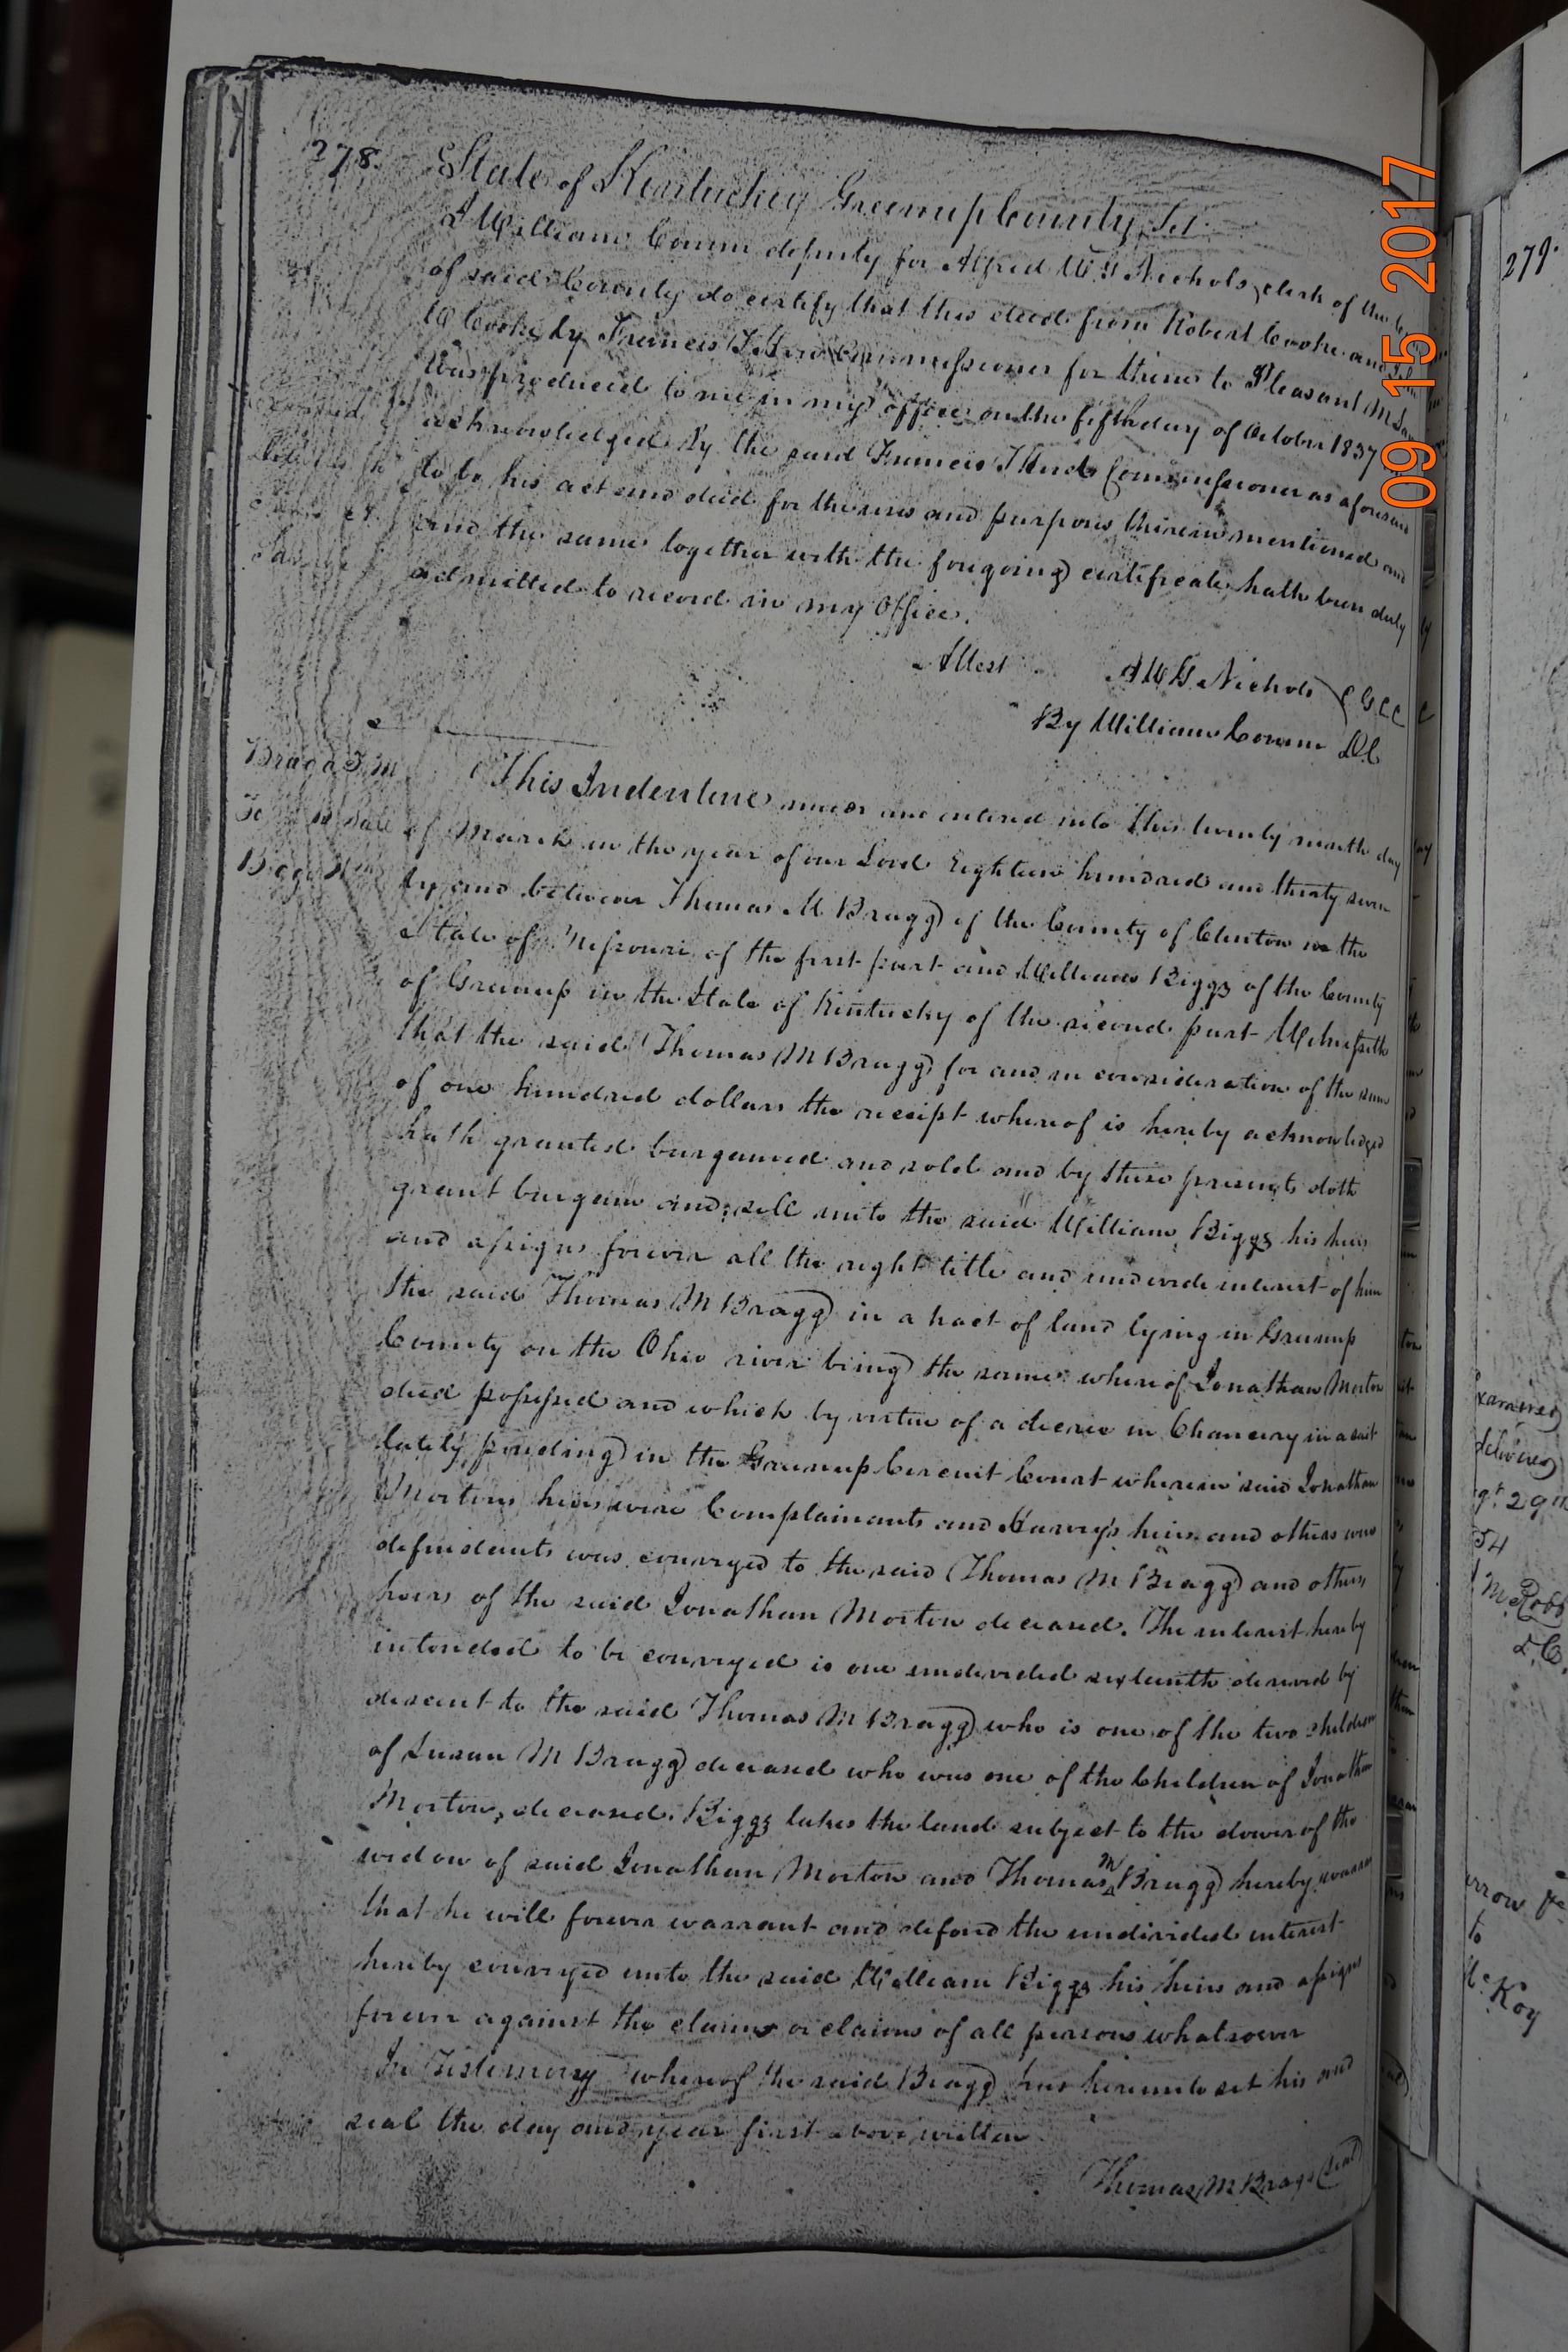 278.
State of Kentucky Greenup County Sct.
I William Corum deputy for Alfred W G Nichols clerk of the
of said County do certify that this deed from Robert Cooke and
W Cooke by Francis T Hord Commissioner for them to Pleasant M
Was produced to me in my office on the fifth day of October 1837
acknowledged by the said Francis T Hord Commissioner as aforesaid
to be his act and deed for the uses and purposes therein mentioned and
and the same together with the foregoing certificate hath been duly
admitted to record in my office.
Attest A W G Nichols C G C C
By William Corum D C
Bragg T. M.
To Deed
Biggs Wm
This Indenture made and entered into this twenty day
of March in the year of our Lord Eighteen hundred and thirty seven
by and between Thomas M Bragg of the County of Clinton in the
State of Missouri of the first part and William Biggs of the County
of Greenup in the State of Kentucky of the second part Witnesseth
that the said Thomas M Bragg for and in consideration of the sum
of one hundred dollars the receipt whereof is hereby acknowledged
hath granted bargained and sold and by these presents doth
grant bargain and sell unto the said William Biggs his heirs
and assigns forever all the right title and undivide interest of him
the said Thomas M Bragg in a tract of land lying in Greenup
County on the Ohio river being the same whereof Jonathan Morton
died possessed and which by virtue of a decree in Chancery in a suit
lately pending in the Greenup Circuit Court wherein said Jonathan
Mortons heirs were Complainants and Harvy's heirs and others were
defendants was conveyed to the said Thomas M Bragg and others
heirs of the said Jonathan Morton deceased. The interest hereby
intended to be conveyed is one undivided sixteenth derived by
descent to the said Thomas M Bragg who is one of the two children
of Susan M Bragg deceased who was one of the Children of Jonathan
Morton, deceased. Biggs takes the land subject to the dower of the
widow of said Jonathan Morton and Thomas M Bragg hereby
that he will forever warrant and defend the undivided interest
hereby conveyed unto the said William Biggs his heirs and assigns
forever against the claims or claims of all persons whatsoever
In Testimony whereof the said Bragg has hereunto set his and
seal the day and year first above written
Thomas M Bragg (seal)
09 15 2017
279.
Examined
delivered
M Robb
D.C.
to